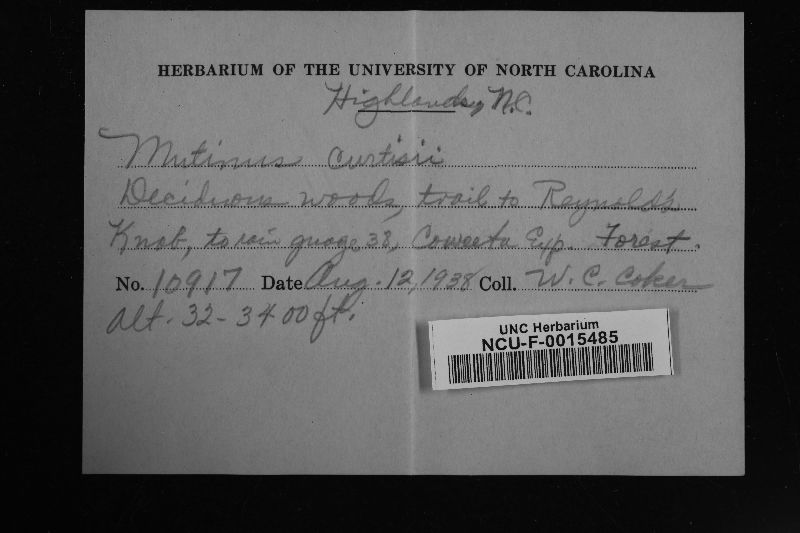 HERBARIUM OF THE UNIVERSITY OF NORTH CAROLINA
Highlands, N.C.
Mutinus curtisii
Deciduous woods, trail to Reynolds
Knob, to rain guage 38, Coweeta Exp. Forest.
No. 10917 Date Aug. 12, 1938 Coll. W. C. Coker
Alt. 32-3400 ft.
UNC Herbarium
NCU-F-0015485